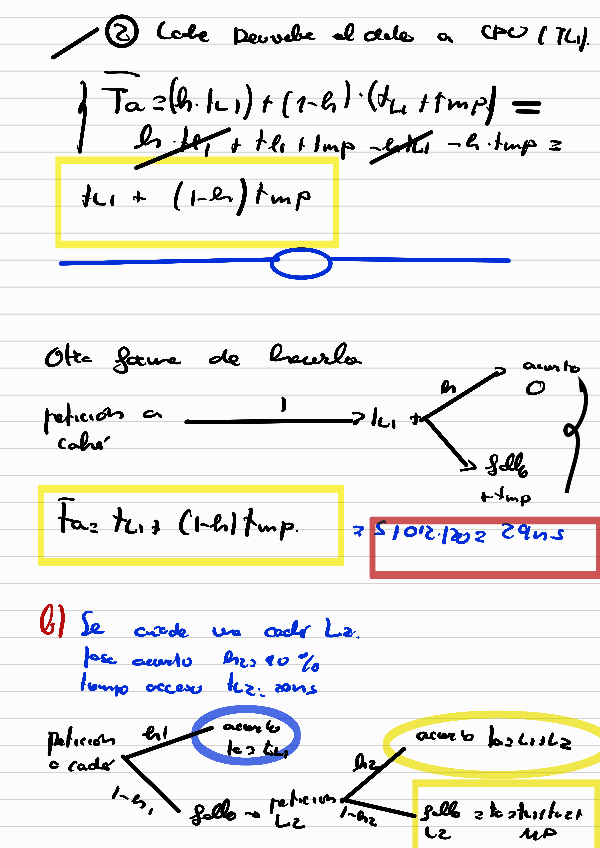 ② Cache Devuelve el dato a CPU (TL1).
Ta = (h · tL1) + (1-h) · (tL1 + tmp) =
h · tL1 + tL1 + tmp - h·tL1 - h · tmp =
tL1 + (1-h) tmp
Otra forma de hacerlo
petición a caché
1
tL1 +
h
acierto
0
fallo
+ tmp
Ta = tL1 + (1-h) tmp.
= 5 + 0'2 · 120 = 29ns
b) Se añade una caché L2.
Tasa acierto h2 = 90 %
tiempo acceso tL2: 20ns
petición a caché
h1
acierto
ta = tL1
1-h1
fallo → petición L2
h2
acierto ta = tL1 + tL2
1-h2
fallo L2
MP